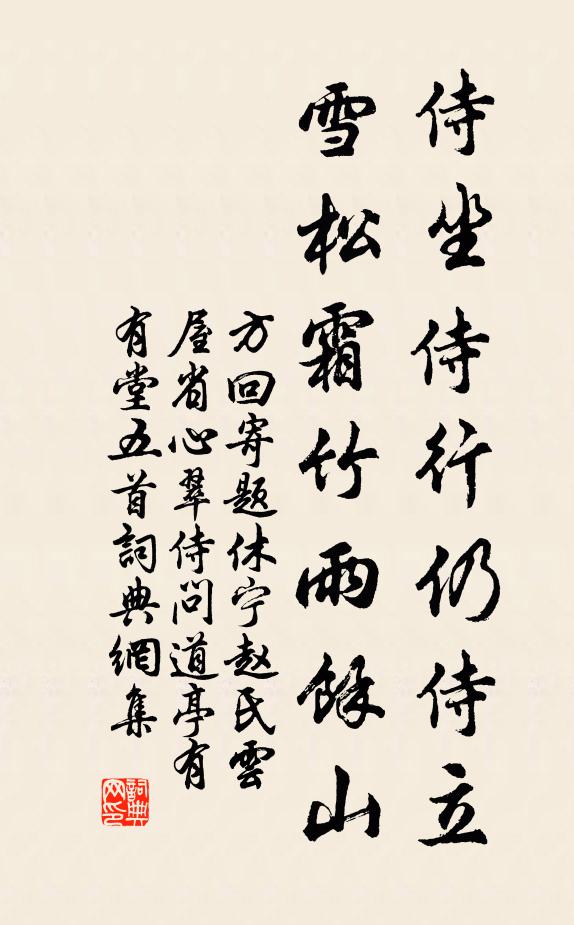 侍坐侍行仍侍立
雪松霜竹雨餘山
方回寄題休宁赵氏雲
屋省心翠侍问道亭有
有堂五首詞典網集
詞典
网印